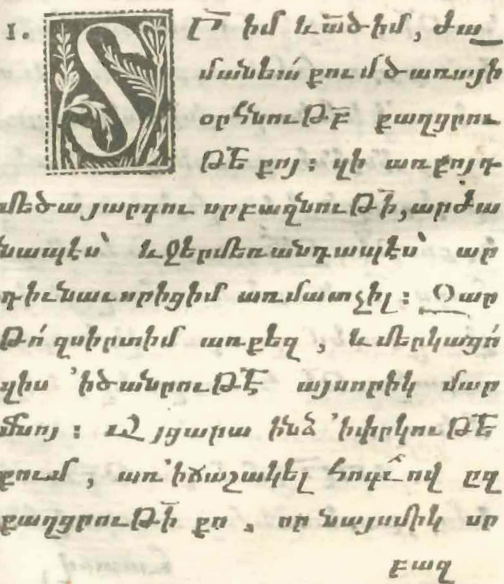 1. ՏՐ իմ և ած իմ, ժա
մանեա՛ քում ծառայի
օրհնութբ քաղցրու
թե քոյ։ զի առքոյդ
մեծայարգու սրբազնութի, արժա
նապէս՝ և ջերմեռանդապէս՝ ար
դիւնաւորիցիմ առմատչիլ։ Զար
թո՛ զսիրտիմ առքեզ, և մերկացո՛
զիս ՚իծանրութէ այսորիկ մար
մնոյ։ Այցարա ինձ ՚իփրկութե
քում, առ՚իճաշակել հոգւով ըզ
քաղցրութի քո, որ նայսմիկ սր
բազ